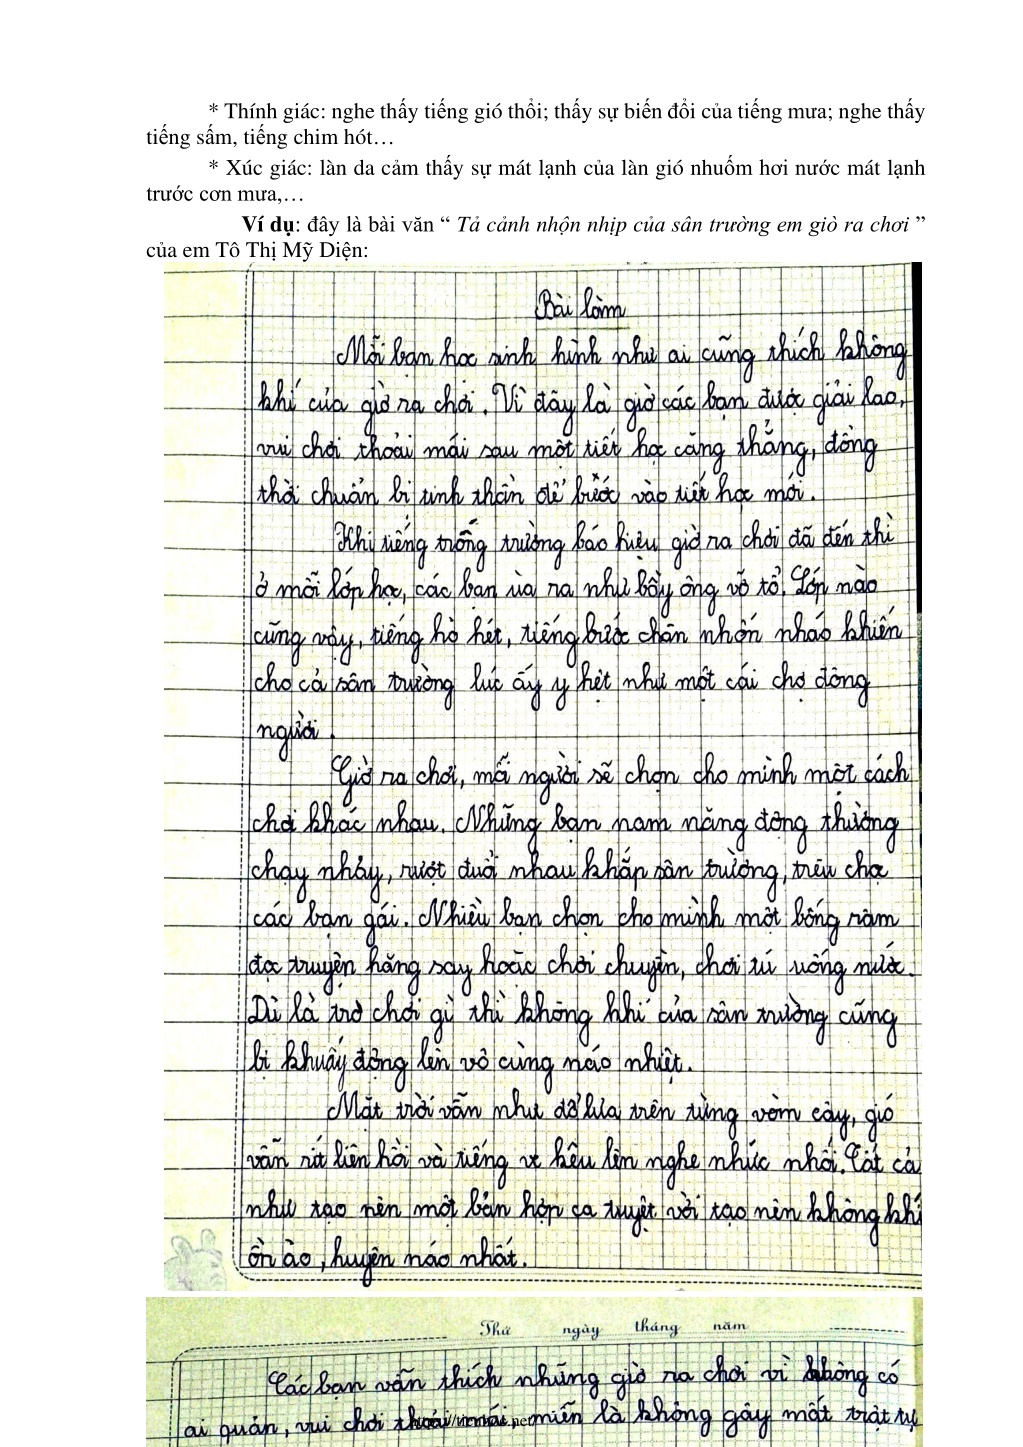 * Thính giác: nghe thấy tiếng gió thổi; thấy sự biến đổi của tiếng mưa; nghe thấy
tiếng sấm, tiếng chim hót…
* Xúc giác: làn da cảm thấy sự mát lạnh của làn gió nhuốm hơi nước mát lạnh
trước cơn mưa,…
Ví dụ: đây là bài văn “ Tả cảnh nhộn nhịp của sân trường em giờ ra chơi ”
của em Tô Thị Mỹ Diện:
Bài làm
Mỗi bạn học sinh hình như ai cũng thích không
khí của giờ ra chơi. Vì đây là giờ các bạn được giải lao,
vui chơi thoải mái sau một tiết học căng thẳng, đồng
thời chuẩn bị tinh thần để bước vào tiết học mới.
Khi tiếng trống trường báo hiệu giờ ra chơi đã đến thì
ở mỗi lớp học, các bạn ùa ra như bầy ong vỡ tổ. Lớp nào
cũng vậy, tiếng hò hét, tiếng bước chân nhốn nháo khiến
cho cả sân trường lúc ấy y hệt như một cái chợ đông
người.
Giờ ra chơi, mỗi người sẽ chọn cho mình một cách
chơi khác nhau. Những bạn nam năng động thường
chạy nhảy, rượt đuổi nhau khắp sân trường, trêu chọc
các bạn gái. Nhiều bạn chọn cho mình một bóng râm
đọc truyện hăng say hoặc chơi chuyền, chơi tú uống nước.
Dù là trò chơi gì thì không khí của sân trường cũng
bị khuấy động lên vô cùng náo nhiệt.
Mặt trời vẫn như đổ lửa trên từng vòm cây, gió
vẫn rít liên hồi và tiếng ve kêu lên nghe nhức nhối. Tất cả
như tạo nên một bản hợp ca tuyệt vời tạo nên không khí
ồn ào, huyên náo nhất.
Thứ ngày tháng năm
Các bạn vẫn thích những giờ ra chơi vì không có
ai quản, vui chơi thoải mái, miễn là không gây mất trật tự